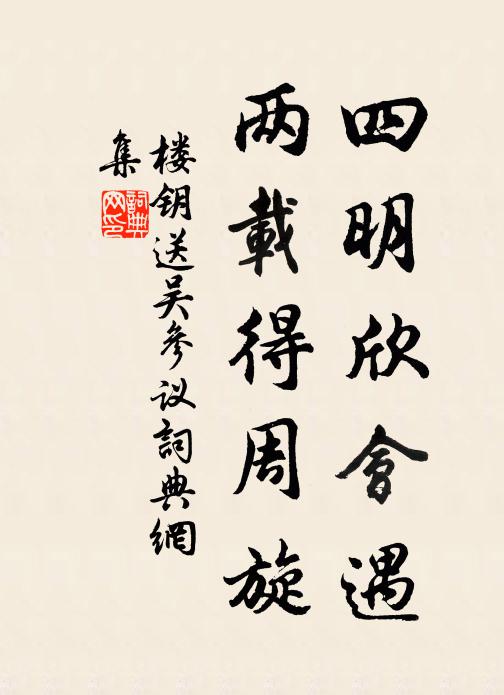 四明欣會遇
两載得周旋
楼钥送吴參议詞典網
集
詞典
网印